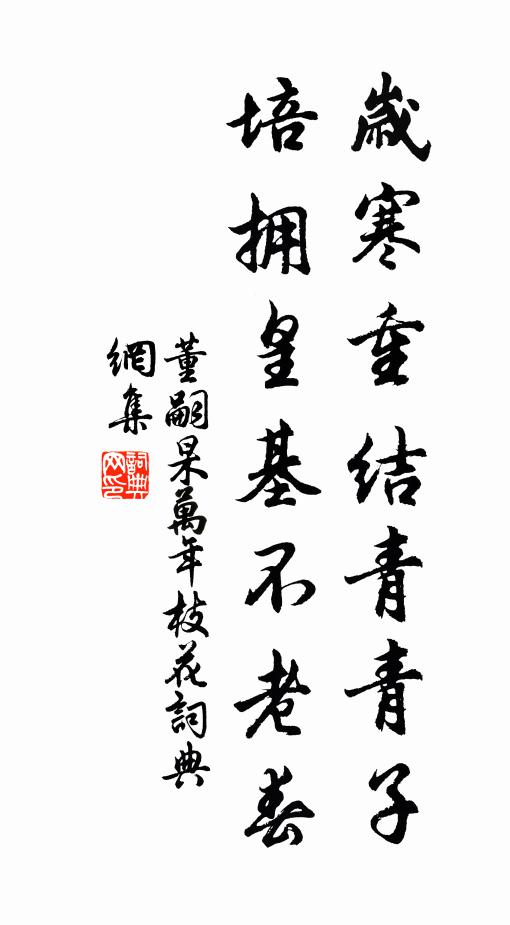 歲寒重結青青子
培擁皇基不老春
董嗣杲萬年枝花詞典
網集
詞典網印